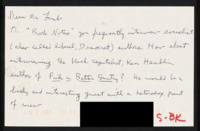 Dear Mr. Lamb
On "Book Notes" you frequently interview somewhat
(also called liberal, Democrat) authors. How about
interviewing the black capitalist, Ken Hamblin
author of Pick a Better Country? He would be a
lively and interesting guest with a refreshing point
of view.
S-BK